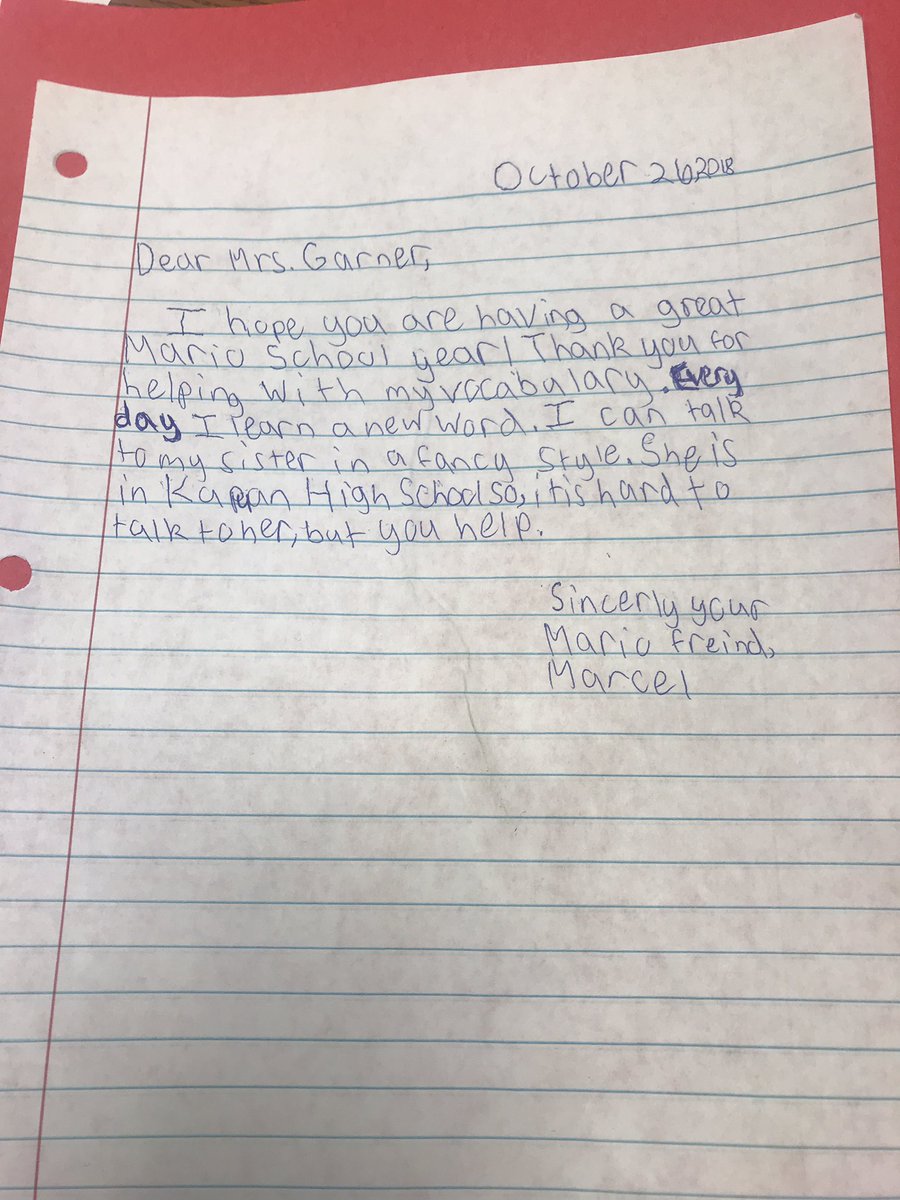 October 26,2018
Dear Mrs. Garner,
I hope you are having a great
Mario School year! Thank you for
helping with my vocabulary. Every
day I learn a new word. I can talk
to my sister in a fancy style. She is
in High School so, it is hard to
talk to her, but you help.
Sincerly your
Mario freind,
Marcel